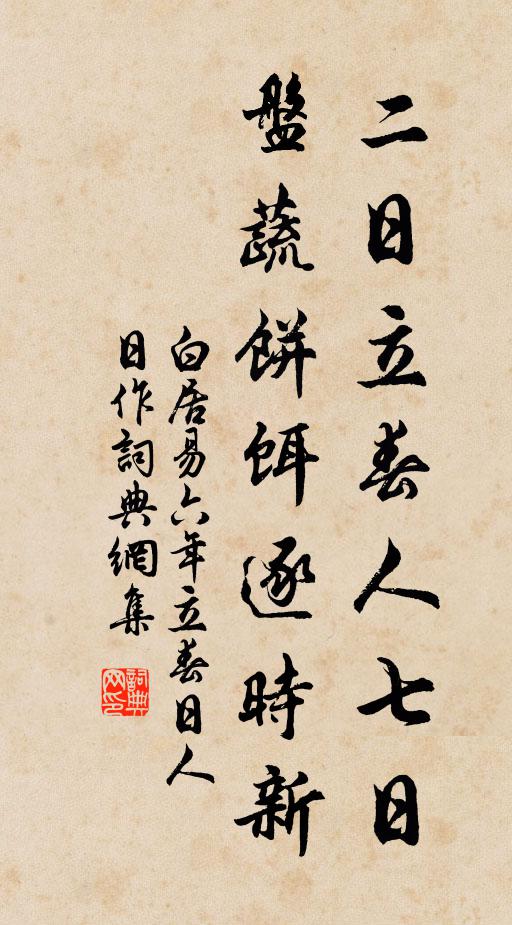 二日立春人七日
盤蔬餅餌逐時新
白居易六年立春日人
日作詞典網集
詞典
网印